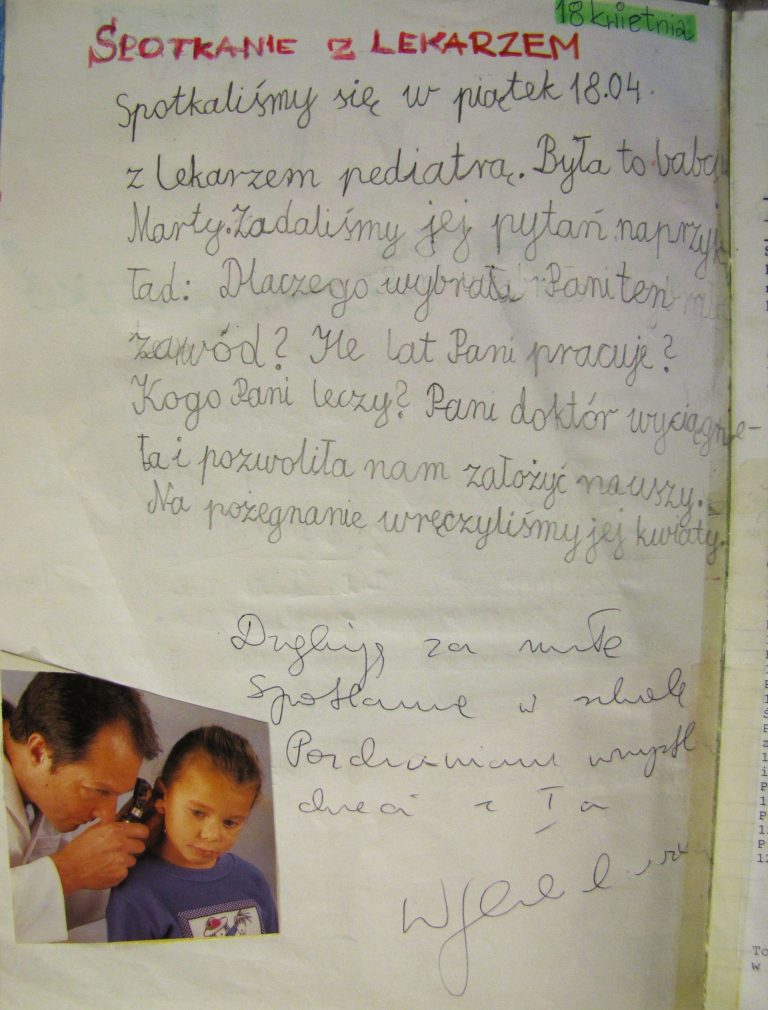 18 kwietnia
SPOTKANIE Z LEKARZEM
Spotkaliśmy się w piątek 18.04.
z lekarzem pediatrą. Była to babcia
Marty. Zadaliśmy jej pytań naprzyk
ład: Dlaczego wybrała Pani ten
zawód? Ile lat Pani pracuje?
Kogo Pani leczy? Pani doktór wyciągnie-
ła i pozwoliła nam założyć na uszy.
Na pożegnanie wręczyliśmy jej kwiaty.
Dziękuję za miłe
spotkanie w szkole
Pozdrawiam wszystk
dzieci z Ia